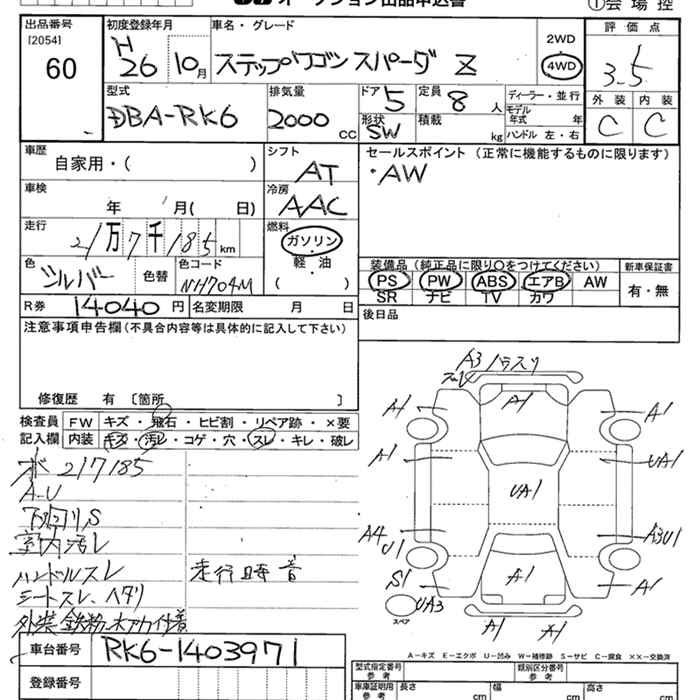 オークション出品申込書
①会場控
出品番号 [2054] 60
初度登録年月 H 26 10月
車名・グレード ステップワゴン スパーダ Z
2WD 4WD
評価点 3.5
外装 C 内装 C
型式 DBA-RK6
排気量 2000 CC
ドア 5 形状 SW
定員 8 人 積載 kg
ディーラー・並行
モデル年式 年
ハンドル 左・右
車歴 自家用・( )
シフト AT
セールスポイント (正常に機能するものに限ります)
・AW
車検 年 月( 日)
冷房 AAC
走行 21万7千185 km
燃料 ガソリン・軽・油 ( )
色 シルバー 色替 色コード NH704M
装備品 (純正品に限り○をつけてください)
PS PW ABS エアB AW
SR ナビ TV カワ
新車保証書 有・無
R券 14040円 名変期限 月 日
後日品
注意事項申告欄 (不具合内容等は具体的に記入して下さい)
修復歴 有 〔箇所 〕
検査員記入欄
FW キズ・飛石・ヒビ割・リペア跡・×要
内装 キズ・汚レ・コゲ・穴・スレ・キレ・破レ
217185
A-U
下回りS
室内汚レ
ハンドルスレ
走行時音
シートスレ、ヘタリ
外装鉄粉、水アカ付着
A3
A1
A1
A1
A1
UA1
UA1
A4
U1
A3U1
S1
A1
A1
UA3
スペア
A1
A1
A－キズ E－エクボ U－凹み W－補修跡 S－サビ C－腐食 ××－交換済
車台番号 RK6-1403971
登録番号
型式指定番号 参考
類別区分番号 参考
車庫証明用 参考 長さ cm 幅 cm 高さ cm